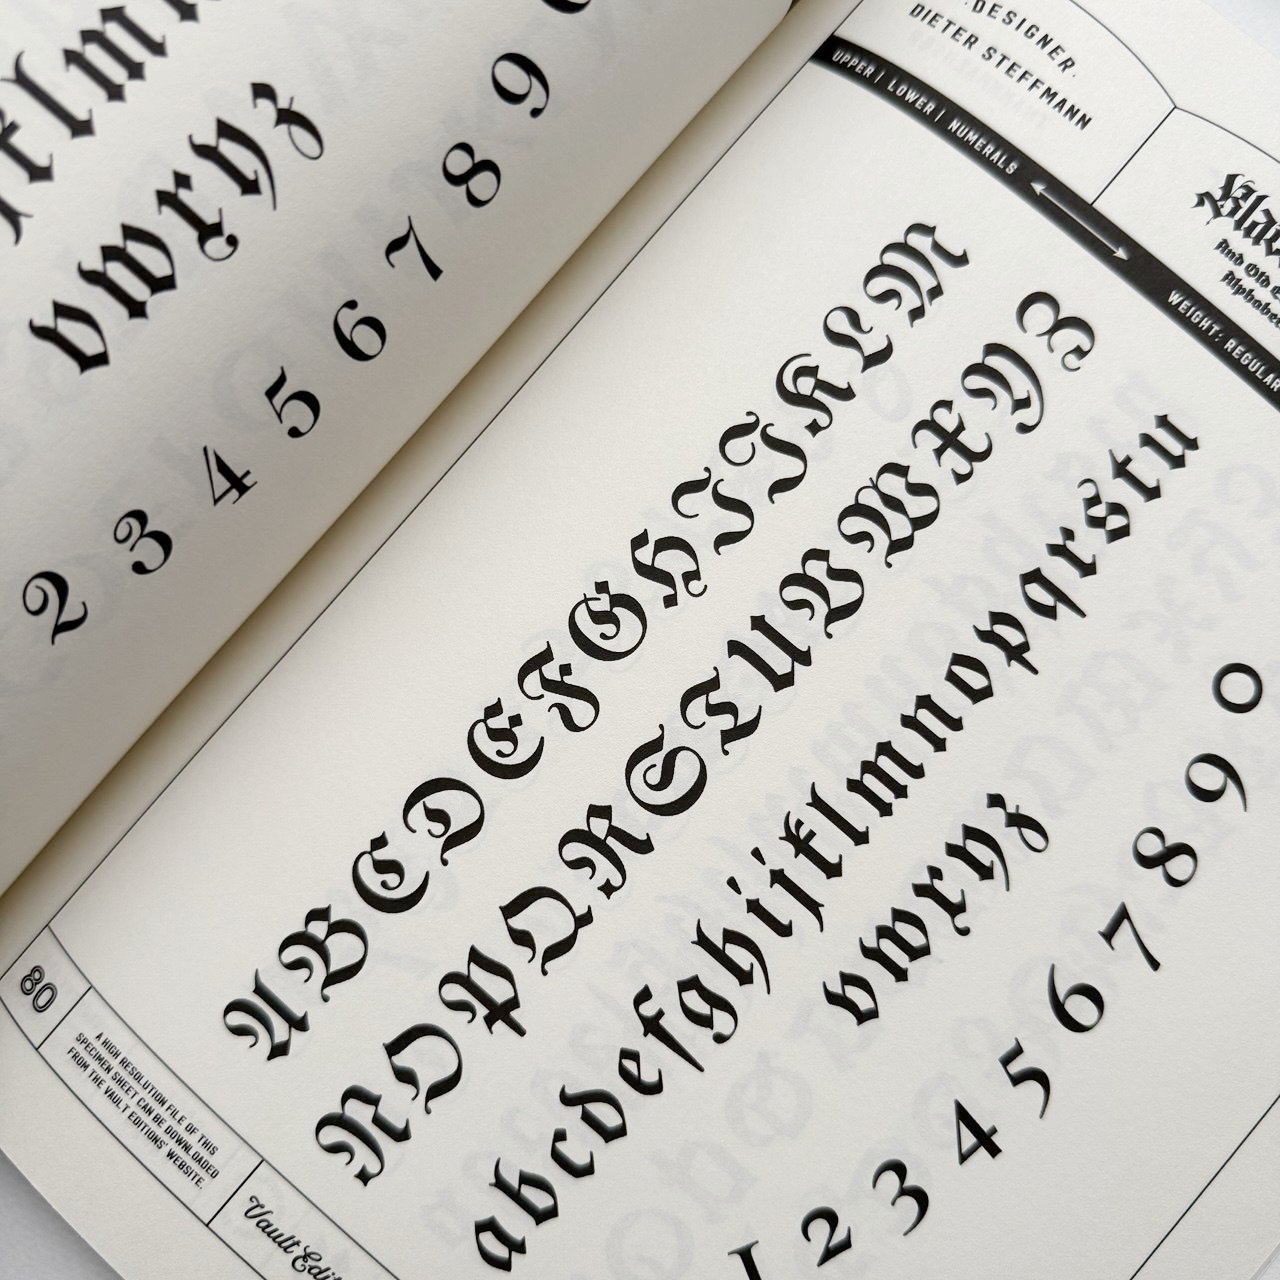 vwxyz
2 3 4 5 6 7 8 9
·DESIGNER·
DIETER STEFFMANN
UPPER | LOWER | NUMERALS
WEIGHT: REGULAR
And Old
ABCDEFGHIJKLM
NOPQRSTUVWXYZ
abcdefghijklmnopqrstu
vwxyz
1 2 3 4 5 6 7 8 9 0
80
A HIGH RESOLUTION FILE OF THIS
SPECIMEN SHEET CAN BE DOWNLOADED
FROM THE VAULT EDITIONS' WEBSITE.
Vault